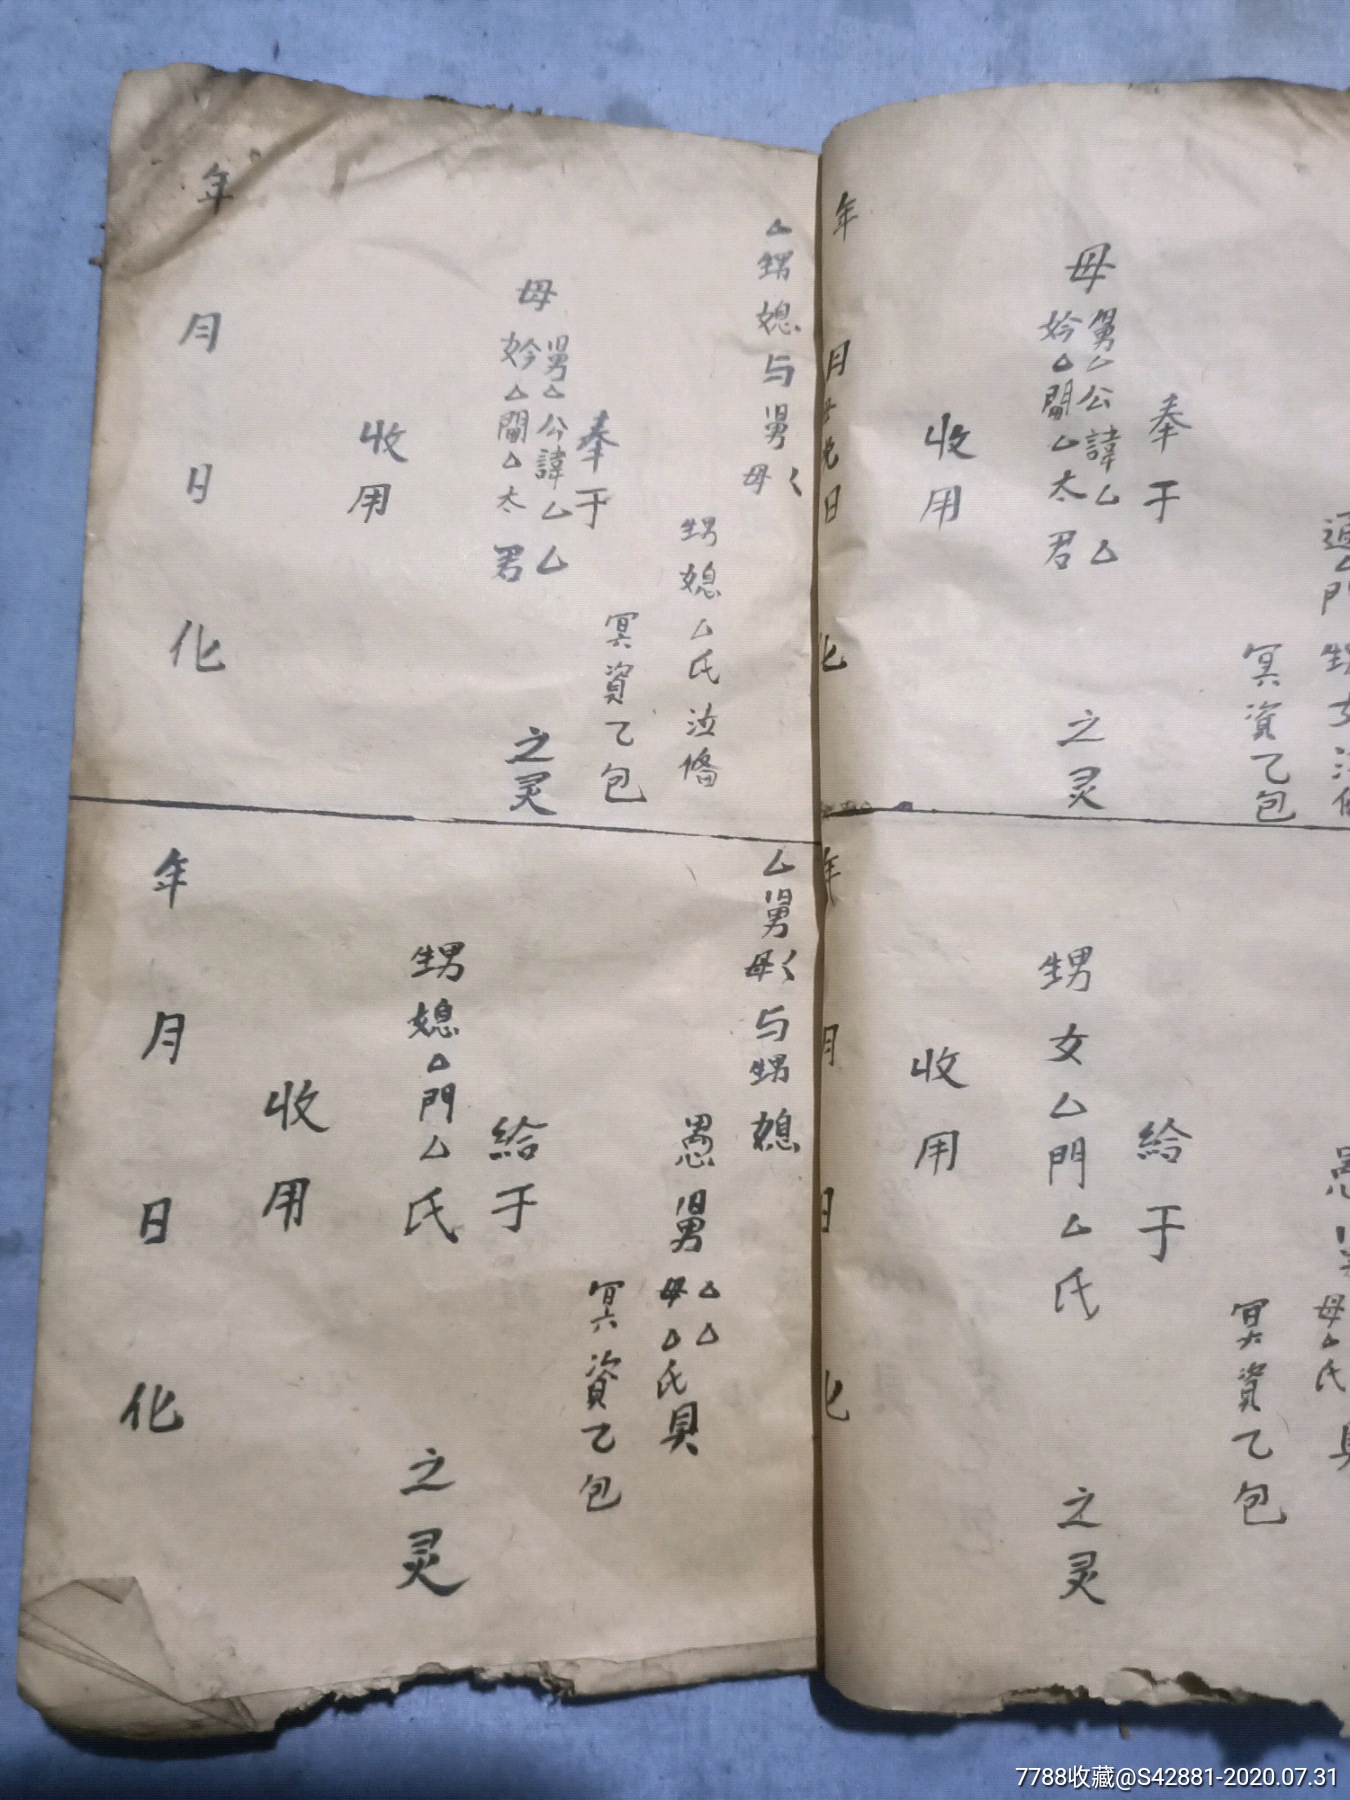 通△門甥女泣俻
冥資乙包
奉于
母
舅△公諱△△
妗△閫△太君
之灵
收用
年月 日化
愚舅
母△氏具
冥資乙包
給于
甥女△門△氏
之灵
收用
年月日化
△甥媳与舅母
甥媳△氏泣俻
冥資乙包
奉于
母
舅△公諱△△
妗△閫△太君
之灵
收用
年月日化
△舅母与甥媳
愚舅△△
母△氏具
冥資乙包
給于
甥媳△門△氏
之灵
收用
年月日化
7788收藏@S42881-2020.07.31